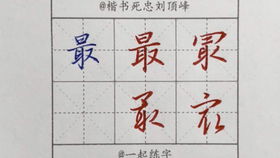 @楷书死忠刘顶峰
最 最 冣
最 㝡
@一起练字